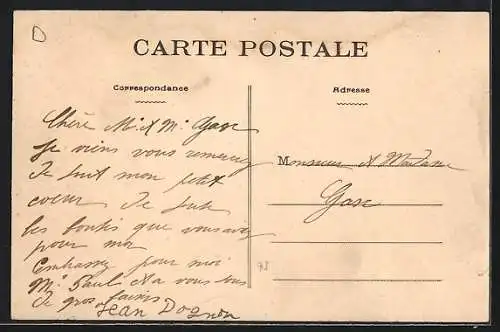 CARTE POSTALE
Correspondance
Adresse
Chère Mr & Me Gase
Je viens vous remercier
De tout mon petit
coeur De toute
les bontés que vous aviez
pour moi
Embrassez pour moi
Mr Paul & a vous tous
De gros baisers
Jean
Monsieur & Madame